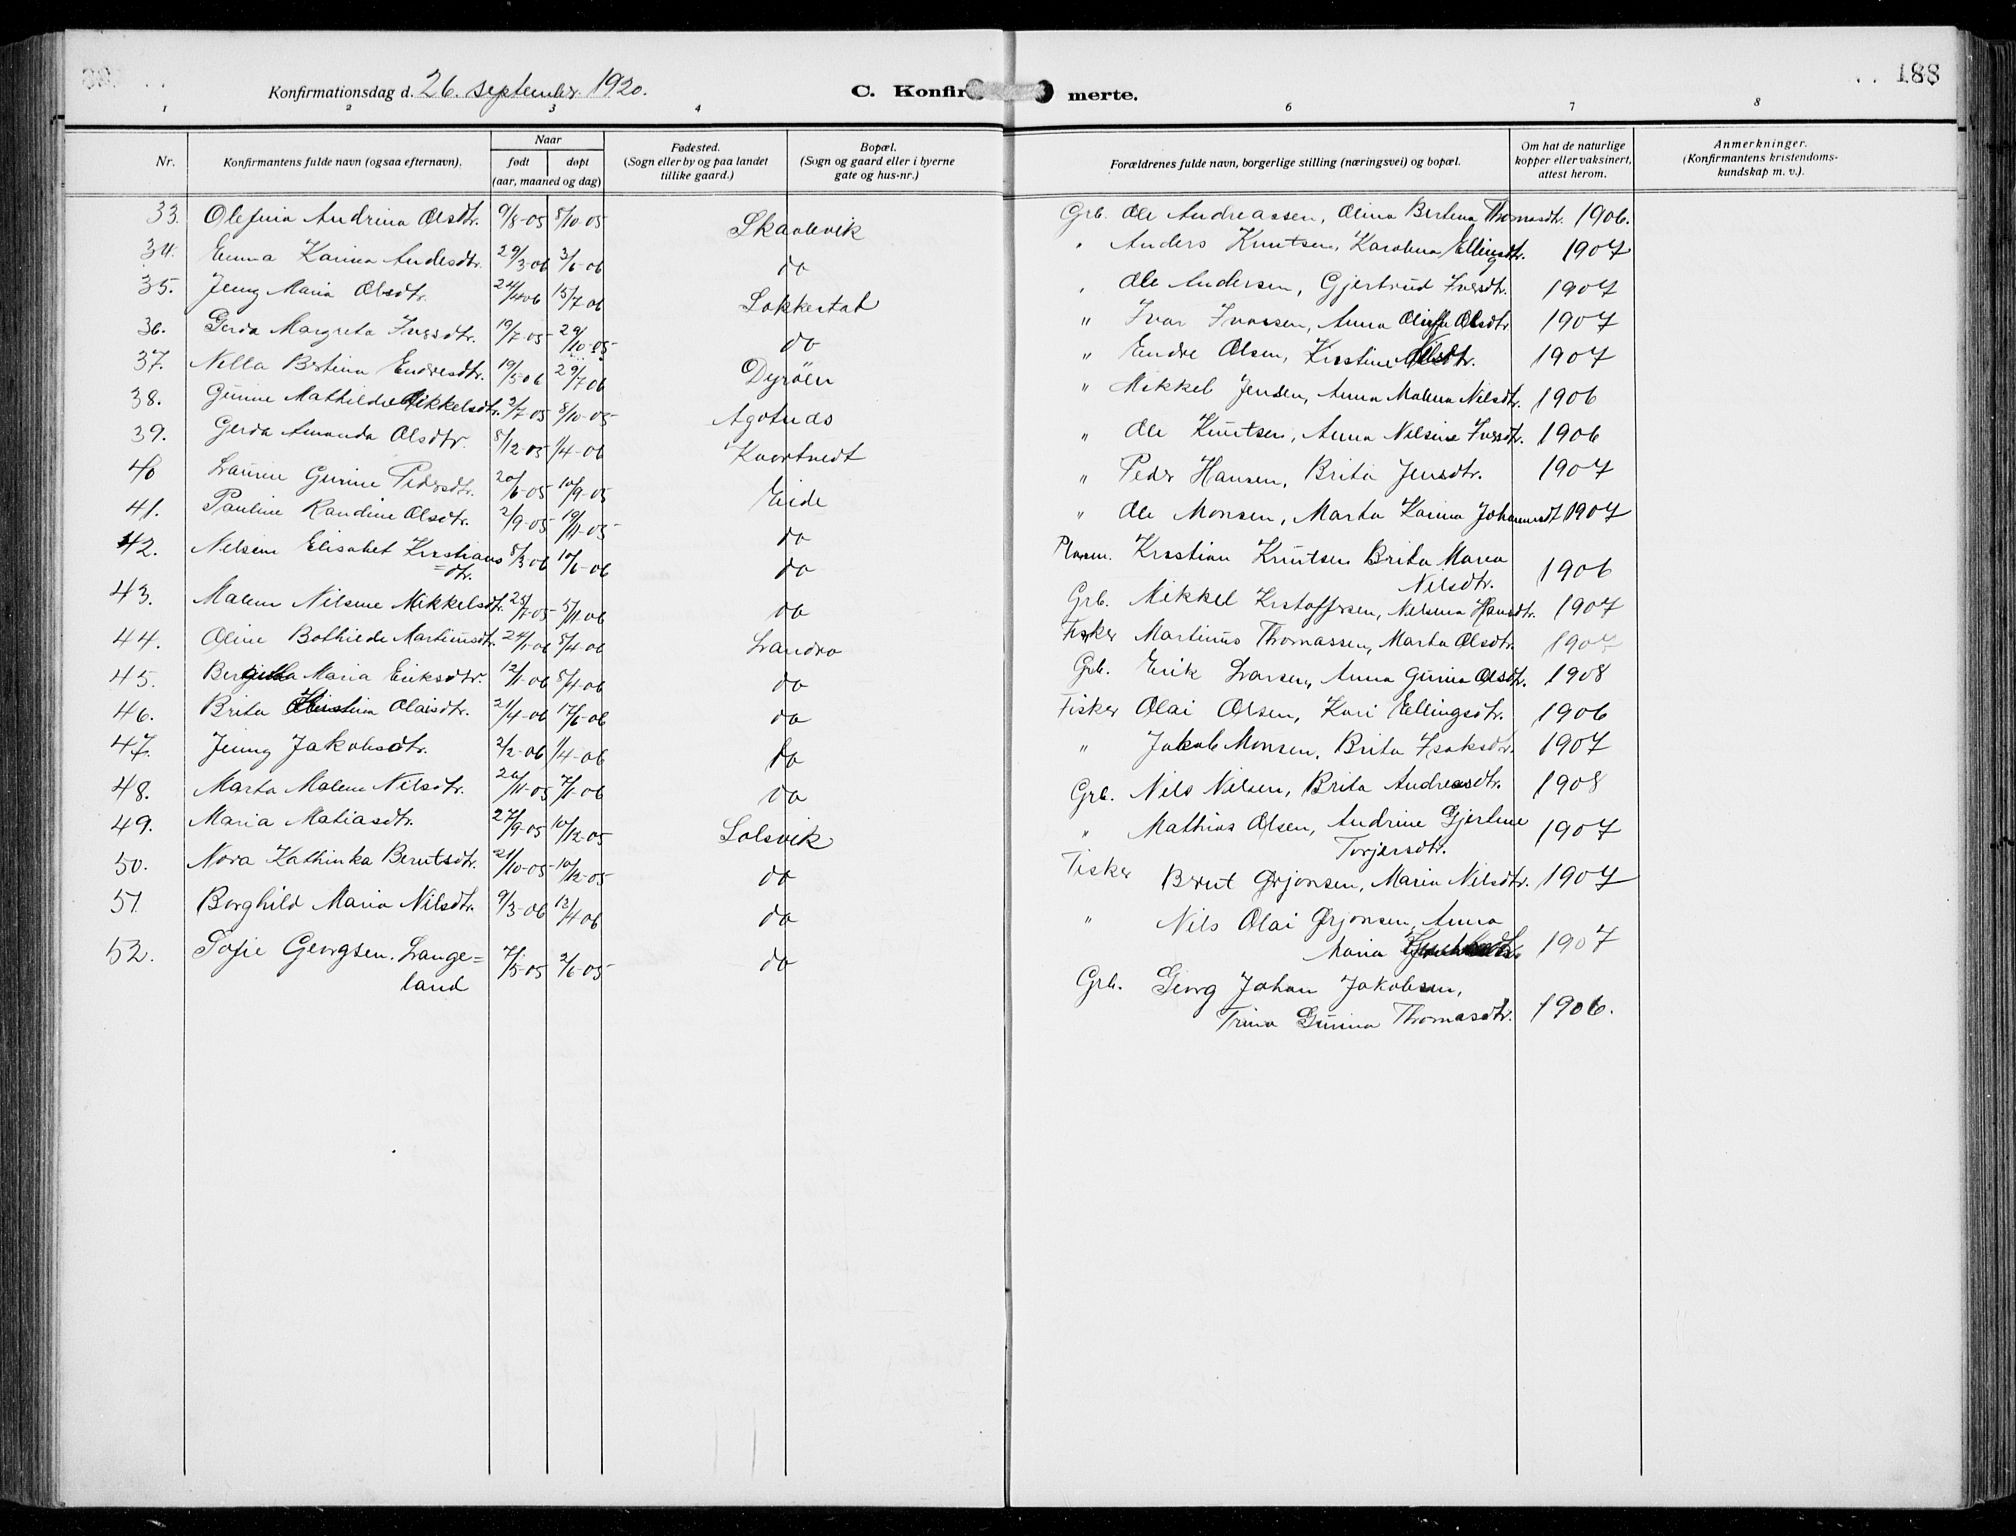 Konfirmationsdag d. 26. september 1920.
C. Konfir merte.
188
1 2 3 4 6 7 8
Nr.
Konfirmantens fulde navn (ogsaa efternavn).
Naar
født døpt
(aar, maaned og dag)
Fødested.
(Sogn eller by og paa landet
tillike gaard.)
Bopæl.
(Sogn og gaard eller i byerne
gate og hus-nr.)
Forældrenes fulde navn, borgerlige stilling (næringsvei) og bopæl.
Om hat de naturlige
kopper eller vaksinert,
attest herom.
Anmerkninger.
(Konfirmantens kristendoms-
kundskap m. v.).
33. Olefina Andrina Olsdtr. 9/8-05 8/10-05 Skaalevik Grb. Ole Andreassen, Olina Bertina Thomasdtr. 1906.
34. Emma Karina Andersdtr. 29/3-06 3/6-06 do " Anders Knutsen, Karolina Ellingsdtr. 1907
35. Jenny Maria Olsdtr. 24/4 06 15/7 06 Lokkestad " Ole Andersen, Gjertrud Iversdtr. 1907
36. Gerda Margreta Ivarsdtr. 19/7-05 29/10-05 do " Ivar Ivarsen, Anna Oliffa Olsdtr 1907
37. Nella Bertina Endresdtr. 19/5-06 29/7 06 Dyrøen " Endre Olsen, Kristine 1907
38. Gurine Mathilde Mikkelsdtr. 2/7-05 8/10-05 Agotnes " Mikkel Jensen, Anna Malena Nilsdtr. 1906
39. Gerda Amanda Olsdtr. 8/12-05 1/4-06 Kvertvedt " Ole Knutsen, Anna Nilsine Iversdtr. 1906
40 Laurine Gurine Pedersdtr. 20/6-05 10/9-05 Eide " Peder Hansen, Brita Jensdtr. 1907
41. Pauline Randine Olsdtr. 2/9-05 19/11-05 do " Ole Monsen, Marta Karina Johannesdt 1907
42. Nelsine Elisabet Kristians 8/3-06 10/6-06 do Kristian Knutsen Brita Maria 1906
=dtr. Nilsdtr.
43. Malene Nilsine Mikkelsdtr. 25/1-05 5/11 06 do Grb. Mikkel Kristoffersen, Nelsina Hansdtr. 1907
44. Oline Bothilde Martinusdtr. 24/1-06 8/4-06 Landro Fisker Martinus Thomassen, Marta Olsdtr.
45. Bergitha Maria Eriksdtr. 12/1-06 8/4-06 do Grb. Erik Larsen, Anna Gurina Olsdtr. 1908
46. Brita Kristina Olaisdtr. 21/4-06 17/6-06 do Fisker Olai Olsen, Kari Ellingsdtr. 1906
47. Jenny Jakobsdtr. 2/2-06 1/4-06 do " Jakob Monsen, Brita Isaksdtr. 1907
48. Marta Malene Nilsdtr. 26/11-05 7/1-06 do Grb. Nils Nilsen, Brita Andreasdtr. 1908
49. Maria Matiasdtr. 27/9-05 10/12-05 Solsvik " Mathias Olsen, Andrine Gjertine 1907
Torjersdtr.
50. Nora Kathinka Berntsdtr. 21/10-05 10/12-05 do Fisker Bernt Ørjonsen, Maria Nilsdtr. 1907
51 Borghild Maria Nilsdtr. 9/3-06 12/4 06 do " Nils Olai Ørjonsen, Anna
Maria 1907
52. Sofie Georgsen. Lange= 7/5-05 2/6-05 do Grb. Georg Johan Jakobsen,
land Trina Gurina Thomasdtr. 1906.